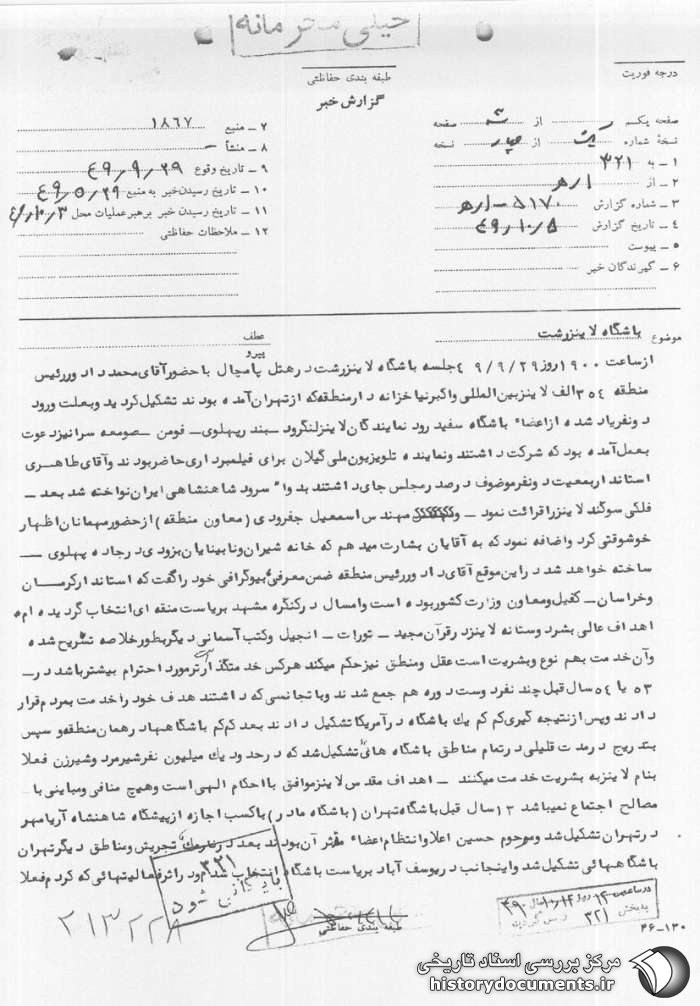 خیلی محرمانه
طبقه بندی حفاظتی
درجه فوریت
گزارش خبر
صفحه یکم از صفحه
نسخهٔ شماره یک از چهار نسخه
۱ ـ به ۳۲۱
۲ ـ از ۱ره
۳ ـ شماره گزارش ۵۱۷۰ـ۱ره
۴ ـ تاریخ گزارش ۴۹٫۱۰٫۵
۵ ـ پیوست
۶ ـ گیرندگان خبر
۷ ـ منبع ۱۸۶۷
۸ ـ منشأ ـ
۹ ـ تاریخ وقوع ۴۹٫۹٫۲۹
۱۰ ـ تاریخ رسیدن خبر به منبع ۴۹٫۵٫۲۹
۱۱ ـ تاریخ رسیدن خبر برهبر عملیات محل
۱۲ ـ ملاحظات حفاظتی
موضوع باشگاه لاینز رشت
عطف
پیرو
ازساعت ۱۹۰۰ روز ۴۹/۹/۲۹ جلسه باشگاه لاینز رشت در هتل پامچال با حضور آقای محمد داور رئیس
منطقه ۳۵۴ الف لاینز بین المللی واکبرنیا خزانه دار منطقه که از تهران آمده بودند تشکیل گردید وبعلت ورود
دونفر یاد شده از اعضاء باشگاه سفید رود نمایندگان لاینز لنگرود ـ بندر پهلوی ـ فومن ـ صومعه سرا نیز دعوت
بعمل آمده بود که شرکت داشتند ونماینده تلویزیون ملی گیلان برای فیلمبرداری حاضر بودند وآقای طاهری
استاندار بمعیت دونفر موضوف در صدر مجلس جای داشتند بدواً سرود شاهنشاهی ایران نواخته شد بعد ـ
فلکی سوگند لاینز را قرائت نمود ـ و مهندس اسمعیل جفرودی (معاون منطقه) از حضور مهمانان اظهار
خوشوقتی کرد واضافه نمود که به آقایان بشارت میدهم که خانه شیران ونابینایان بزودی در جاده پهلوی ـ
ساخته خواهد شد در این موقع آقای داور رئیس منطقه ضمن معرفی بیوگرافی خود را گفت که استاندار کرمان
وخراسان ـ کفیل ومعاون وزارت کشور بوده است وامسال در کنگره مشهد بریاست منقه ای انتخاب گردیده ام
اهداف عالی بشر دوستانه لاینز در قرآن مجید ـ تورات ـ انجیل وکتب آسمانی دیگر بطور خلاصه تشریح شده
وآن خدمت بهم نوع وبشریت است عقل ومنطق نیز حکم میکند هرکس خدمتگذارتر مورد احترام بیشتر باشد در ـ
۵۳ یا ۵۴ سال قبل چند نفر دوست دور هم جمع شدند وبا تجانسی که داشتند هدف خود را خدمت بمردم قرار
دادند وپس از نتیجه گیری کم کم یك باشگاه در آمریکا تشکیل دادند بعد کم کم باشگاهها در همان منطقه و سپس
بتدریج در مدت قلیلی در تمام مناطق باشگاه هائی تشکیل شد که در حدود یك میلیون نفر شیرمرد وشیرزن فعلا
بنام لاینز به بشریت خدمت میکنند ـ اهداف مقدس لاینز موافق با احکام الهی است وهیچ منافی ومباینی با
مصالح اجتماع نمیباشد ۱۳ سال قبل باشگاه تهران (باشگاه مادر) با کسب اجازه از پیشگاه شاهنشاه آریامهر
در تهران تشکیل شد ومرحوم حسین اعلا وانتظام اعضاء مؤثر آن بودند بعد در تجریش ومناطق دیگر تهران
باشگاههائی تشکیل شد واینجانب در یوسف آباد بریاست باشگاه انتخاب شدم ودر اثر فعالیتهائی که کردم فعلا
۳۲۱
بایگانی شود
۲۱۳۲۲۸
طبقه بندی حفاظتی
در ساعت ۱۴ روز
به بخش ۳۲۱
۴۶-۱۳۰
مرکز بررسی اسناد تاریخی
historydocuments.ir